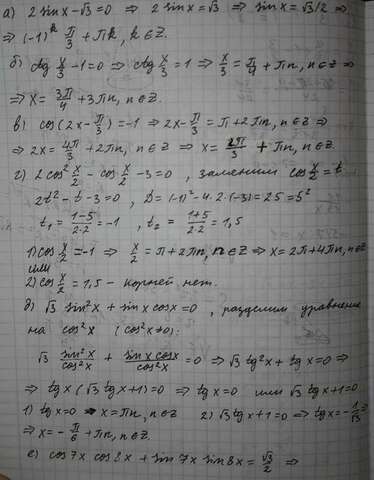 а) 2 sin x - √3 = 0 ⇒ 2 sin x = √3 ⇒ sin x = √3/2 ⇒
⇒ (-1)^k π/3 + πk, k ∈ Z.
б) ctg x/3 - 1 = 0 ⇒ ctg x/3 = 1 ⇒ x/3 = π/4 + πn, n ∈ Z ⇒
⇒ x = 3π/4 + 3πn, n ∈ Z.
в) cos(2x - π/3) = -1 ⇒ 2x - π/3 = π + 2πn, n ∈ Z ⇒
⇒ 2x = 4π/3 + 2πn, n ∈ Z ⇒ x = 2π/3 + πn, n ∈ Z.
г) 2cos² x/2 - cos x/2 - 3 = 0, заменим cos x/2 = t
2t² - t - 3 = 0, D = (-1)² - 4·2·(-3) = 25 = 5²
t₁ = (1-5)/(2·2) = -1, t₂ = (1+5)/(2·2) = 1,5
1) cos x/2 = -1 ⇒ x/2 = π + 2πn, n ∈ Z ⇒ x = 2π + 4πn, n ∈ Z
или
2) cos x/2 = 1,5 - корней нет.
д) √3 sin²x + sin x cos x = 0, разделим уравнение
на cos²x (cos²x ≠ 0):
√3 sin²x/cos²x + sin x cos x/cos²x = 0 ⇒ √3 tg²x + tg x = 0 ⇒
⇒ tg x (√3 tg x + 1) = 0 ⇒ tg x = 0 или √3 tg x + 1 = 0
1) tg x = 0 x = πn, n ∈ Z 2) √3 tg x + 1 = 0 ⇒ tg x = -1/√3 ⇒
⇒ x = -π/6 + πn, n ∈ Z.
е) cos 7x cos 8x + sin 7x sin 8x = √3/2 ⇒